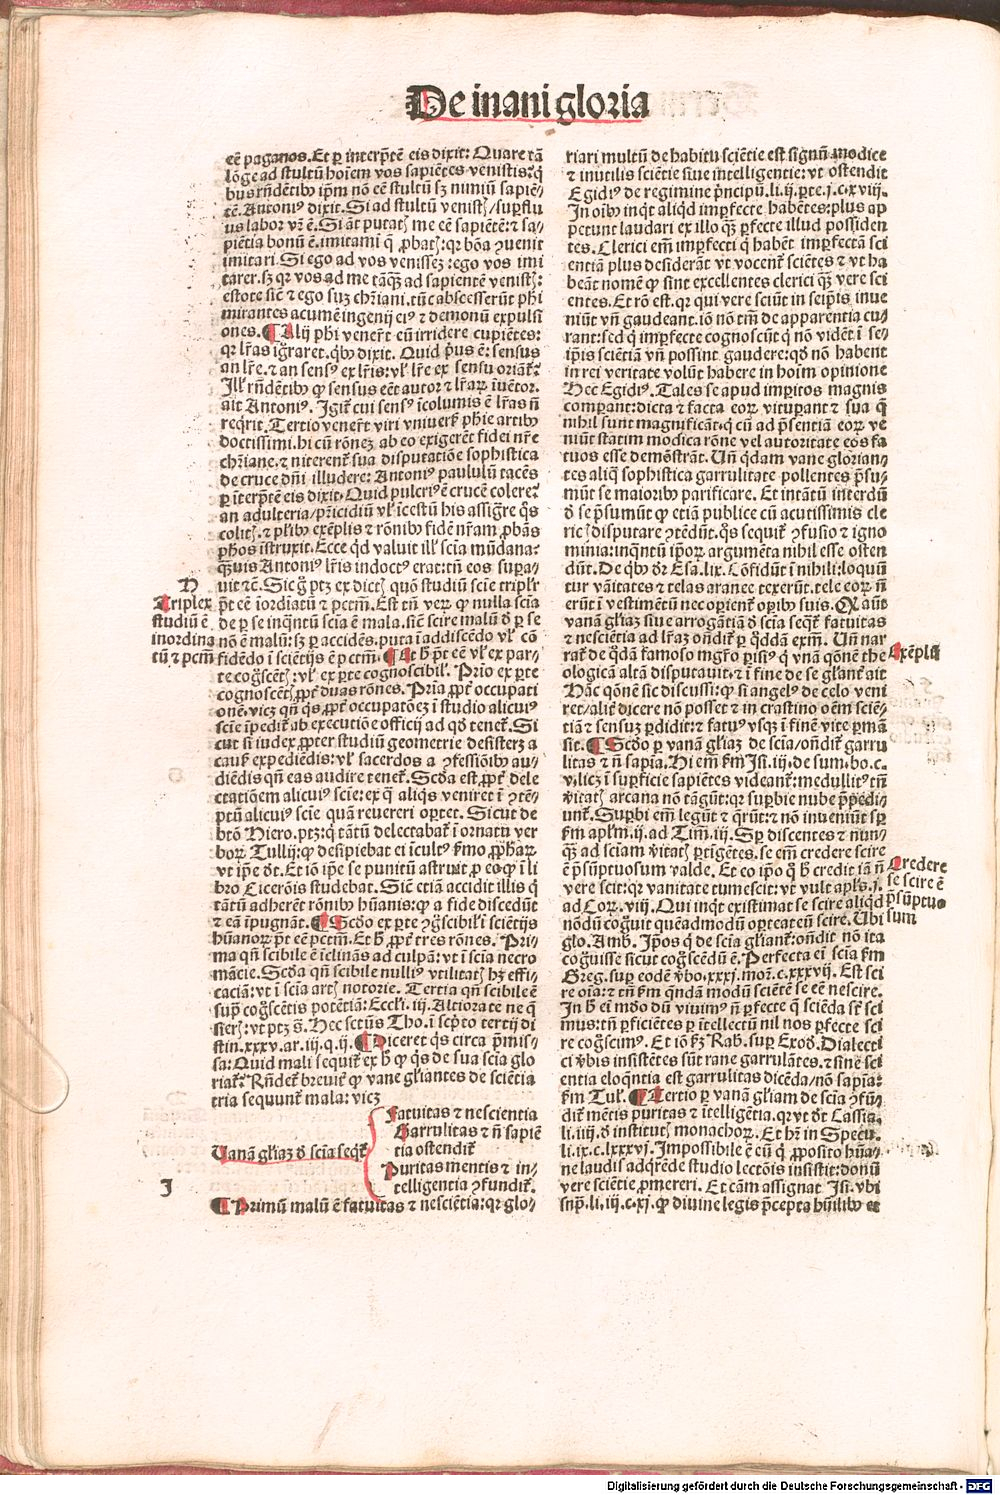 De inani gloria
eē paganos. Et ꝑ interp̄tē eis dixit: Quare tā
lōge ad stultū hoīem vos sapiētes venistis: q̇
bus rn̄dētibꝰ ip̄m nō eē stultū sꝫ nimiū sapiē⸗
tē. Antoniꝰ dixit. Si ad stultū venistꝭ/suꝑflu
us labor vr̄ ē. Si āt putatꝭ me eē sapiētē: ⁊ sa⸗
piētia bonū ē. imitami q̄ ꝓbatꝭ: qꝛ bōa ꝯuenit
imitari. Si ego ad vos venissez: ego vos imi
tarer. sꝫ qꝛ vos ad me tāqꝫ ad sapientē venistꝭ:
estote sic̄ ⁊ ego suꝫ chr̄iani. tūc abscesserūt phi
mirantes acumē ingenij eiꝰ ⁊ demonū expulsi
ones. ¶ Alij phi venerˀt eū irridere cupiētes:
qꝛ lr̄as ignraret. qͥbꝰ dixit. Quid p̄us ē: sensus
an lr̄e. ⁊ an sensꝰ ex lr̄is: vl̓ lr̄e ex sensu oriāt̄?
Ill̓ rn̄dētibꝰ ꝙ sensus eēt autor ⁊ lr̄aꝝ īuētor.
ait Antoniꝰ. Igit̄ cui sensꝰ īcolumis ē lr̄as n̄
reqrit. Tertio venerˀt viri vniuersꝭ phie artibꝰ
doctissimi. hi cū rōneꝫ ab eo exigerēt fidei nr̄e
chr̄iane. ⁊ niterent̄ sua disputatiōe sophistica
de cruce dn̄i illudere: Antoniꝰ paululū tacēs
ꝑ īterp̄tē eis dixit. Quid pulcriꝰ ē crucē colere?
an adulteria/pn̄icidiū vl̓ īcestū his assigre q̄s
colitꝭ. ⁊ pl̓ibꝰ exēplis ⁊ rōnibꝰ fidē nr̄am ꝓbās
pħos īstruxit. Ecce qd̓ valuit ill̓ scīa mūdana?
qͣꝫuis Antoniꝰ lr̄is indoctꝰ erat: tn̄ eos suꝑa⸗
uit ⁊c̄. Sic ḡ ptꝫ ex dictꝭ quō studiū scīe triplr̓
p̄t eē iordiatū ⁊ pctm̄. Est tn̄ verꝝ ꝙ nulla scīa
de ꝑ se inqͣntū scīa ē mala. sic̄ scire malū d̓ ꝑ se
nō ē malū: sꝫ ꝑ accidēs. puta ī addiscēdo vl̓ cō
fidēdo ī sciētijs ē pctm̄. ¶ At h̓ p̄t eē vl̓ ex par⸗
te cog̓scētꝭ: vl̓ ex ꝑte cognoscibil̓. Prīo ex ꝑte
cognoscētꝭ ꝓpt̓ duas rōnes. Pria ꝓpt̓ occupati
onē. vicꝫ qn̄ q̄s ꝓpt̓ occupatōeꝫ ī studio alicuiꝰ
scīe īpedit̄ ab executiōe officij ad qd̓ tenet̄. Si
cut si iudex ꝓpter studiū geometrie desisterꝫ a
causꝭ expediēdis: vl̓ sacerdos a ꝯfessiōibꝰ au⸗
diēdis qn̄ eas audire tenet̄. Scd̓a est ꝓpt̓ dele
ctatiōem alicuiꝰ scīe: ex q̄ aliqs veniret ī ꝯtē⸗
ptū alicuiꝰ scīe quā reuereri oꝑtet. Sicut de
btō Hiero. ptꝫ: q̇ tātū delectabat̄ ī ornatu ver
boꝝ Tullij: ꝙ despiebat ei īcultꝰ ẜmo ꝓphaꝝ
vt ipe d̓t. Et iō ipe se punitū astruit ꝓ eo ꝙ ī li
bro Cicerōis studebat. Sic̄ etiā accidit illis q̇
tātū adherēt rōnibꝰ hūanis: ꝙ a fide discedūt
⁊ eā īpugnāt. ¶ Scd̓o ex ꝑte ꝯg̓scibil̓ ī sciētijs
hūanoꝝ p̄t eē pctm̄. Et h̓ ꝓpt̓ tres rōnes. Pri⸗
ma qn̄ scibile ē īclinās ad culpā: vt ī scīa necro
mācie. Scd̓a qn̄ scibile nulliꝰ vtilitatꝭ hꝫ effi⸗
caciā: vt ī scīa artꝭ notorie. Tertia qn̄ scibile ē
supͣ cog̓scētis potētiā: Eccl̓i. iij. Altiora te ne q̄
sierꝭ: vt ptꝫ s̄. Hec sctūs Tho. ī scp̄to tertij di
stin. xxxv. ar. iij. q. ij. ¶ Diceret q̄s circa p̄mis⸗
sa: Quid mali sequit̄ ex h̓ ꝙ q̄s de sua scīa glo
riat̄? Rn̄det̄ breuit̓ ꝙ vane gl̓iantes de sciētia
tria sequunt̄ mala: vicꝫ
Vanā gl̓iaꝫ d̓ scīa seqt̄
Fatuitas ⁊ nescientia
Garrulitas ⁊ n̄ sapiē
tia ostendit̄
Puritas mentis ⁊ in⸗
telligentia ꝯfundit̄.
¶ Primū malū ē fatuitas ⁊ nesciētia: qꝛ glo⸗
D
Triplex
studiū ē
inordina
tū ⁊ pctm̄
I
riari multū de habitu sciētie est signū modice
⁊ inutilis sciētie siue intelligentie: vt ostendit
Egidiꝰ de regimine p̄ncipū. li. ij. ꝑte. j. c. xviij.
In oībꝰ inqͥt aliqd imꝑfecte habētes: plus ap
petunt laudari ex illo qꝫ ꝑfecte illud possiden
tes. Clerici em̄ imꝑfecti q̇ habēt imꝑfectā sci
entiā plus desiderāt vt vocent̄ sciētes ⁊ vt ha
beāt nomē ꝙ sint excellentes clerici qꝫ vere sci
entes. Et rō est. qꝛ qui vere sciūt in seip̄is inue
niūt vn̄ gaudeant. iō nō tm̄ de apparentia cu⸗
rant: sed q̇ imꝑfecte cognoscūt q̇ nō vidēt ī se⸗
ip̄is sciētiā vn̄ possint gaudere: qd̓ nō habent
in rei veritate volūt habere in hoīm opinione
Hec Egidiꝰ. Tales se apud imꝑitos magnis
comꝑant: dicta ⁊ facta eoꝝ vituꝑant ⁊ sua q̄
nihil sunt magnificāt. q̇ cū ad p̄sentiā eoꝝ ve
niūt statim modica rōne vel autoritate eos fa
tuos esse demōstrāt. Un̄ qd̄am vane glorian⸗
tes aliq̄ sophistica garrulitate pollentes p̄su⸗
mūt se maioribꝰ parificare. Et intātū interdū
d̓ se p̄sumūt ꝙ etiā publice cū acutissimis cle
ricꝭ disputare ꝯtēdūt. q̄s sequit̄ ꝯfusio ⁊ igno
minia: inqͣntū ip̄oꝝ argumēta nihil esse osten
dūt. De qͥbꝰ d̓r Esa. lix. Cōfidūt ī nihili: loquū
tur vāitates ⁊ telas aranee texerūt. tele eoꝝ n̄
erūt ī vestimētū nec oꝑient̄ oꝑibꝰ suis. Q̇ aūt
vanā gl̓iaꝫ siue arrogātiā d̓ scīa seqt̄ fatuitas
⁊ nesciētia ad lr̄aꝫ on̄dit̄ ꝑ qd̄dā exm̄. Un̄ nar
rat̄ de qd̄ā famoso mgr̄o ꝑisiꝰ q̇ vnā qōnē the
ologicā altā disputauit. ⁊ ī fine de se gl̓iant̄ ait
Hāc qōnē sic discussi: ꝙ si angelꝰ de celo veni
ret/alit̓ dicere nō posset ⁊ in crastino oēm sciē⸗
tiā ⁊ sensuꝫ ꝑdidit: ⁊ fatuꝰ vsqꝫ ī finē vite ꝑmā
sit. ¶ Scd̓o ꝑ vanā gl̓iaꝫ de scīa/on̄dit̄ garru
litas ⁊ n̄ sapīa. Hi em̄ ẜm Isi. iij. de sum. bo. c.
v. licꝫ ī suꝑficie sapiētes videant̄: medullitꝰ tn̄
v̓itatꝭ arcana nō tāgūt: qꝛ suꝑbie nube p̄pedi⸗
unt̄. Suꝑbi em̄ legūt ⁊ qrūt: ⁊ nō inueniūt Sꝑ
ẜm apl̓m. ij. ad Tim̄. iij. Sꝑ discentes ⁊ nun⸗
qꝫ ad sciam v̓itatꝭ ꝑtigētes. se em̄ credere scire
ē p̄sūptuosum valde. Et eo ip̄o q̇ h̓ credit iā n̄
vere scit: qꝛ vanitate tumescit: vt vult apl̓s. j.
ad Coꝝ. viij. Qui inqͥt existimat se scire aliqd
nōdū cog̓uit quēadmodū oꝑteat eū scire. Ubi
glo. Amb. Ip̄os q̇ de scīa gl̓iant̄: on̄dit nō ita
cog̓uisse sicut cog̓scēdū ē. Perfecta ei scīa ẜm
Greg. suꝑ eodē v̓bo. xxxj. moꝝ. c. xxxvij. Est sci
re oīa: ⁊ tn̄ ẜm qn̄dā modū sciētē se eē nescire.
In h̓ ei mō do dū viuimꝰ n̄ ꝑfecte q̄ sciēda sr̄ sci
mus: tn̄ ꝑficiētes ꝑ ītellectū nil nos ꝑfecte sci
re cog̓scimꝰ. Et iō ẜꝫ Rab. suꝑ Exod̓. Dialecti
ci v̓bis insistētes sūt rane garrulātes. ⁊ sine sci
entia eloqn̄tia est garrulitas dicēda/nō sapīa:
ẜm Tul̓. ¶ Tertio ꝑ vanā gl̓iam de scīa ꝯfū⸗
dit̄ mētis puritas ⁊ ītelligētia. qꝛ vt d̓t Cassia.
li. iiij. d̓ institutꝭ monachoꝝ. Et hr̄ in Specu.
li. ix. c. lxxxvj. Impossibile ē eū q̇ ꝓposito hūa⸗
ne laudis adqrēde studio lectōis insistit: donū
vere sciētie ꝓmereri. Et cām assignat Isi. vbi
supͣ. li. iij. c. xj. ꝙ diuine legis p̄cepta hūilibꝰ et
Exēplū
Credere
se scire ē
p̄sūptuo
sum
Digitalisierung gefördert durch die Deutsche Forschungsgemeinschaft - DFG